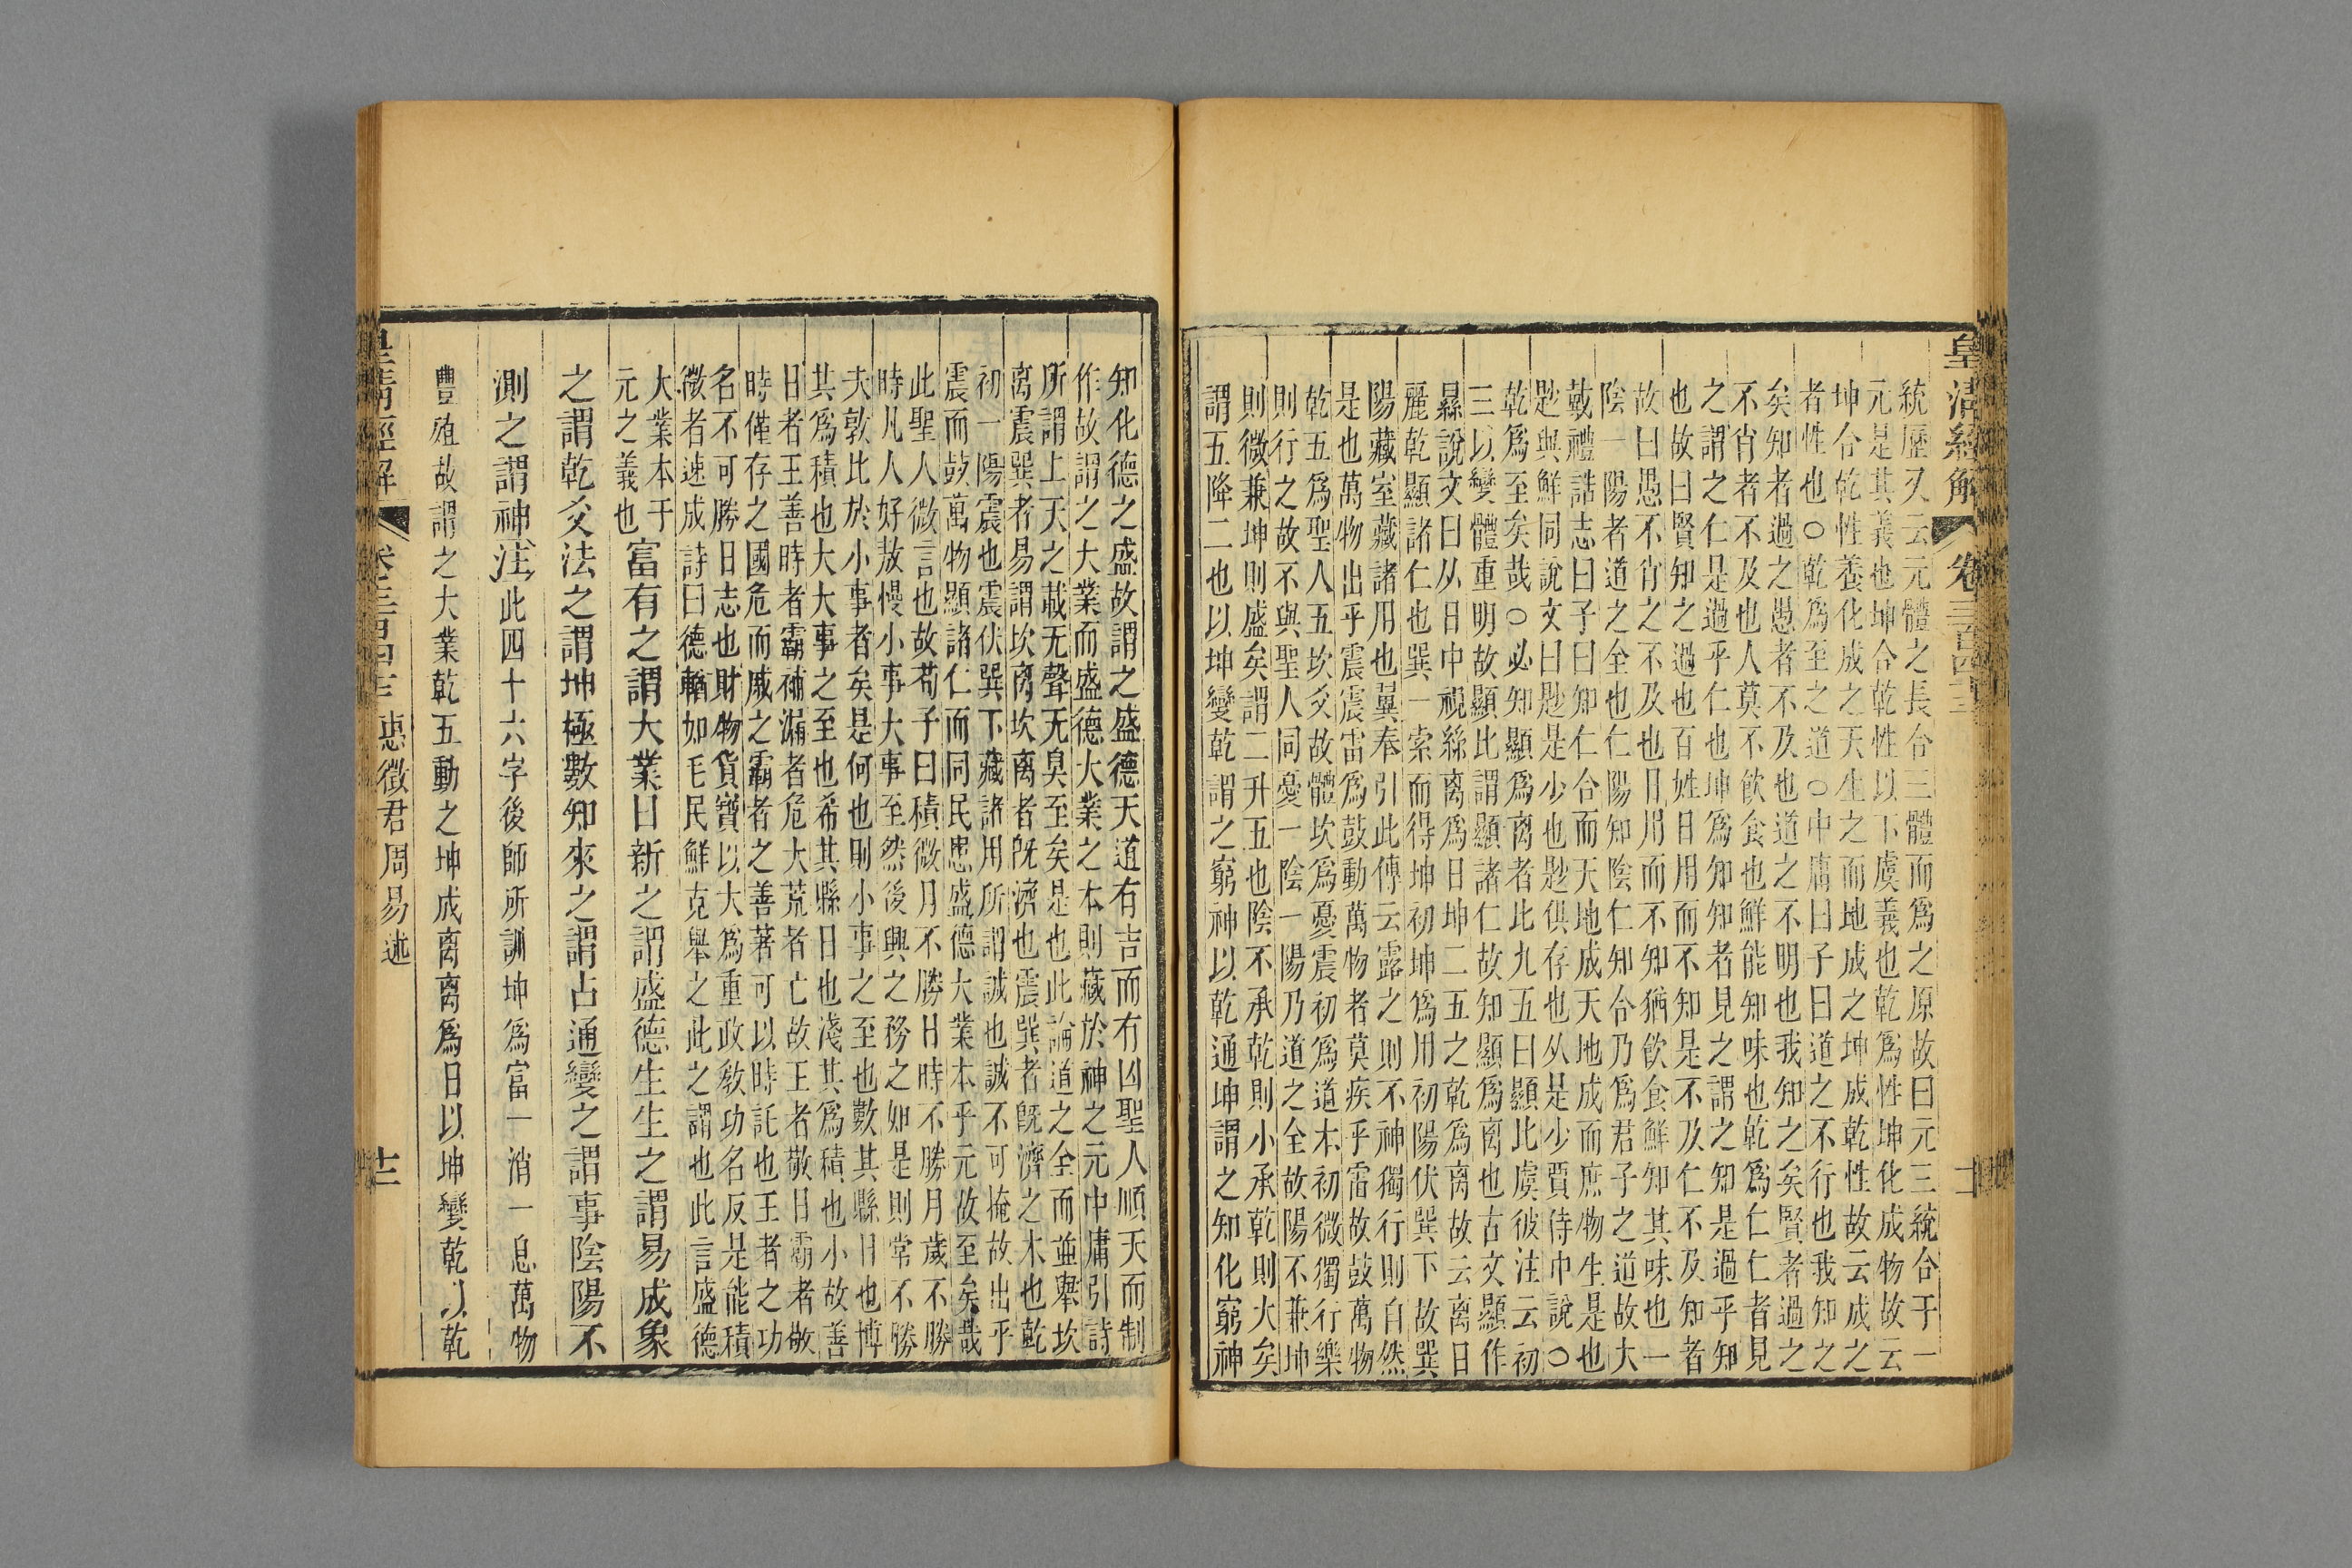 皇清經解 卷三百四十三 十一
統歷又云元體之長合三體而爲之原故曰元三統合于一
元是其義也坤合乾性以下虞義也乾爲性坤化成物故云
坤合乾性養化成之天生之而地成之坤成乾性故云成之
者性也○乾爲至之道○中庸曰子曰道之不行也我知之
矣知者過之愚者不及也道之不明也我知之矣賢者過之
不肖者不及也人莫不飮食也鮮能知味也乾爲仁仁者見
之謂之仁是過乎仁也坤爲知知者見之謂之知是過乎知
也故曰賢知之過也百姓日用而不知是不及仁不及知者
故曰愚不肖之不及也日用而不知猶飮食鮮知其味也一
陰一陽者道之全也仁陽知陰仁知合乃爲君子之道故大
戴禮誥志曰子曰知仁合而天地成天地成而庶物生是也
尟與鮮同說文曰尟是少也尟俱存也从是少賈侍中說○
乾爲至矣哉○必知顯爲离者比九五曰顯比虞彼注云初
三以變體重明故顯比謂顯諸仁故知顯爲离也古文顯作
㬎說文曰从日中視絲离爲日坤二五之乾爲离故云离日
麗乾顯諸仁也巽一索而得坤初坤爲用初陽伏巽下故巽
陽藏室藏諸用也翼奉引此傳云露之則不神獨行則自然
是也萬物出乎震震雷爲鼓動萬物者莫疾乎雷故鼓萬物
乾五爲聖人五坎爻故體坎爲憂震初爲道本初微獨行樂
則行之故不與聖人同憂一陰一陽乃道之全故陽不兼坤
則微兼坤則盛矣謂二升五也陰不承乾則小承乾則大矣
謂五降二也以坤變乾謂之窮神以乾通坤謂之知化窮神
知化德之盛故謂之盛德天道有吉而有凶聖人順天而制
作故謂之大業而盛德大業之本則藏於神之元中庸引詩
所謂上天之載无聲无臭至矣是也此論道之全而並舉坎
离震巽者易謂坎离坎离者旣濟也震巽者旣濟之本也乾
初一陽震也震伏巽下藏諸用所謂誠也誠不可掩故出乎
震而鼓萬物顯諸仁而同民患盛德大業本乎元故至矣哉
此聖人微言也故荀子曰積微月不勝日時不勝月歲不勝
時凡人好敖慢小事大事至然後興之務之如是則常不勝
夫敦比於小事者矣是何也則小事之至也數其縣日也博
其爲積也大大事之至也希其縣日也淺其爲積也小故善
日者王善時者霸補漏者危大荒者亡故王者敬日霸者敬
時僅存之國危而戚之霸者之善著可以時託也王者之功
名不可勝日志也財物貨寶以大爲重政敎功名反是能積
微者速成詩曰德輶如毛民鮮克舉之此之謂也此言盛德
大業本于
元之義也
富有之謂大業日新之謂盛德生生之謂易成象
之謂乾爻法之謂坤極數知來之謂占通變之謂事陰陽不
測之謂神注此四十六字後師所訓坤爲富一消一息萬物
豐殖故謂之大業乾五動之坤成离离爲日以坤變乾以乾
皇淸經解 卷三百四十三 惠徵君周易述 十二